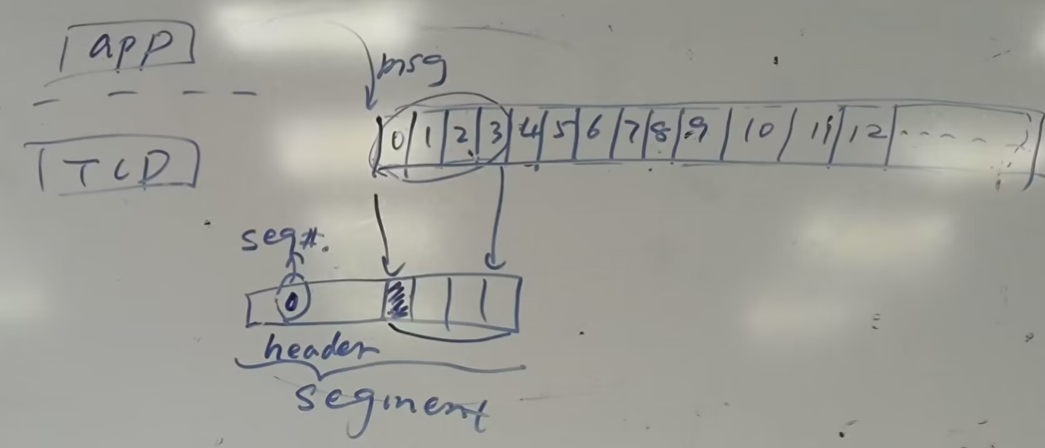 app
msg
0 1 2 3 4 5 6 7 8 9 10 11 12 -----
TCP
seq#.
0
header
segment